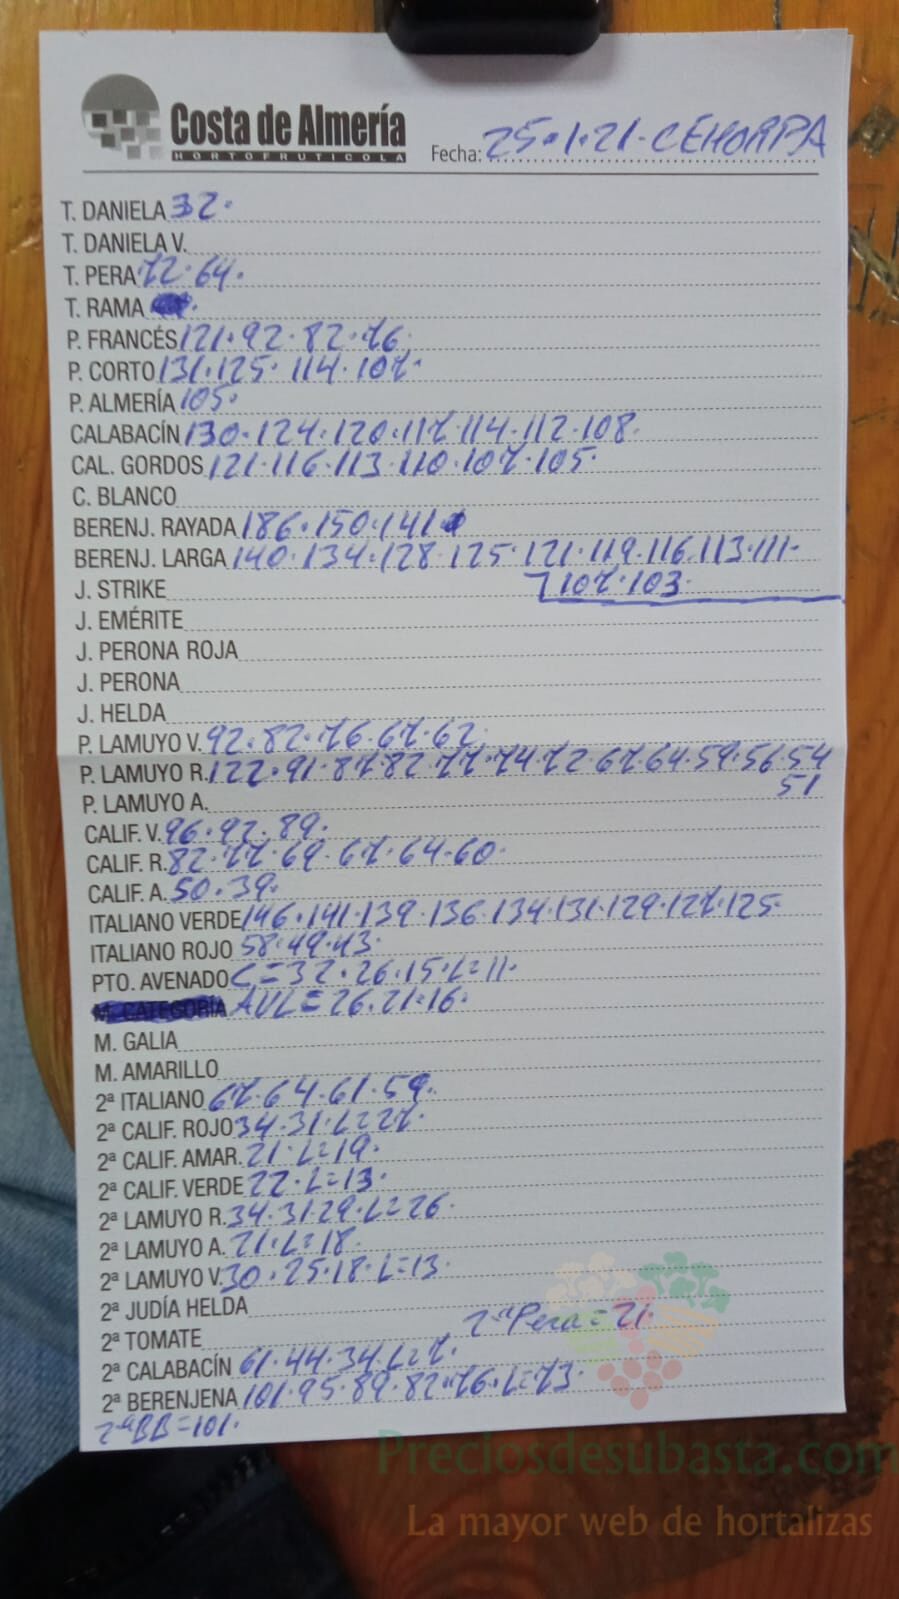 Costa de Almería
HORTOFRUTICOLA
Fecha: 25·1·21· CEHORPA
T. DANIELA 32·
T. DANIELA V.
T. PERA 72·64·
T. RAMA
P. FRANCÉS 121·92·82·76
P. CORTO 131·125·114·107·
P. ALMERÍA 105·
CALABACÍN 130·124·120·117·114·112·108·
CAL. GORDOS 121·116·113·110·107·105·
C. BLANCO
BERENJ. RAYADA 186·150·141
BERENJ. LARGA 140·134·128·125·121·119·116·113·111·
J. STRIKE 107·103·
J. EMÉRITE
J. PERONA ROJA
J. PERONA
J. HELDA
P. LAMUYO V. 92·82·76·67·62
P. LAMUYO R. 122·91·87·82·77·74·72·67·64·59·56·54
51
P. LAMUYO A.
CALIF. V. 96·92·89·
CALIF. R. 82·77·69·67·64·60·
CALIF. A. 50·39·
ITALIANO VERDE 146·141·139·136·134·131·129·127·125·
ITALIANO ROJO 58·49·43·
PTO. AVENADO C=32·26·15·L=11·
M. CATEGORÍA AVL=26·21·16·
M. GALIA
M. AMARILLO
2ª ITALIANO 67·64·61·59·
2ª CALIF. ROJO 34·31·L=27·
2ª CALIF. AMAR. 21·L=19·
2ª CALIF. VERDE 22·L=13·
2ª LAMUYO R. 34·31·29·L=26·
2ª LAMUYO A. 21·L=18·
2ª LAMUYO V. 30·25·18·L=13·
2ª JUDÍA HELDA
2ª TOMATE 2ªPera=21·
2ª CALABACÍN 61·44·34·L=7·
2ª BERENJENA 101·95·89·82·76·L=73·
2ªBB=101·
Preciosdesubasta.com
La mayor web de hortalizas